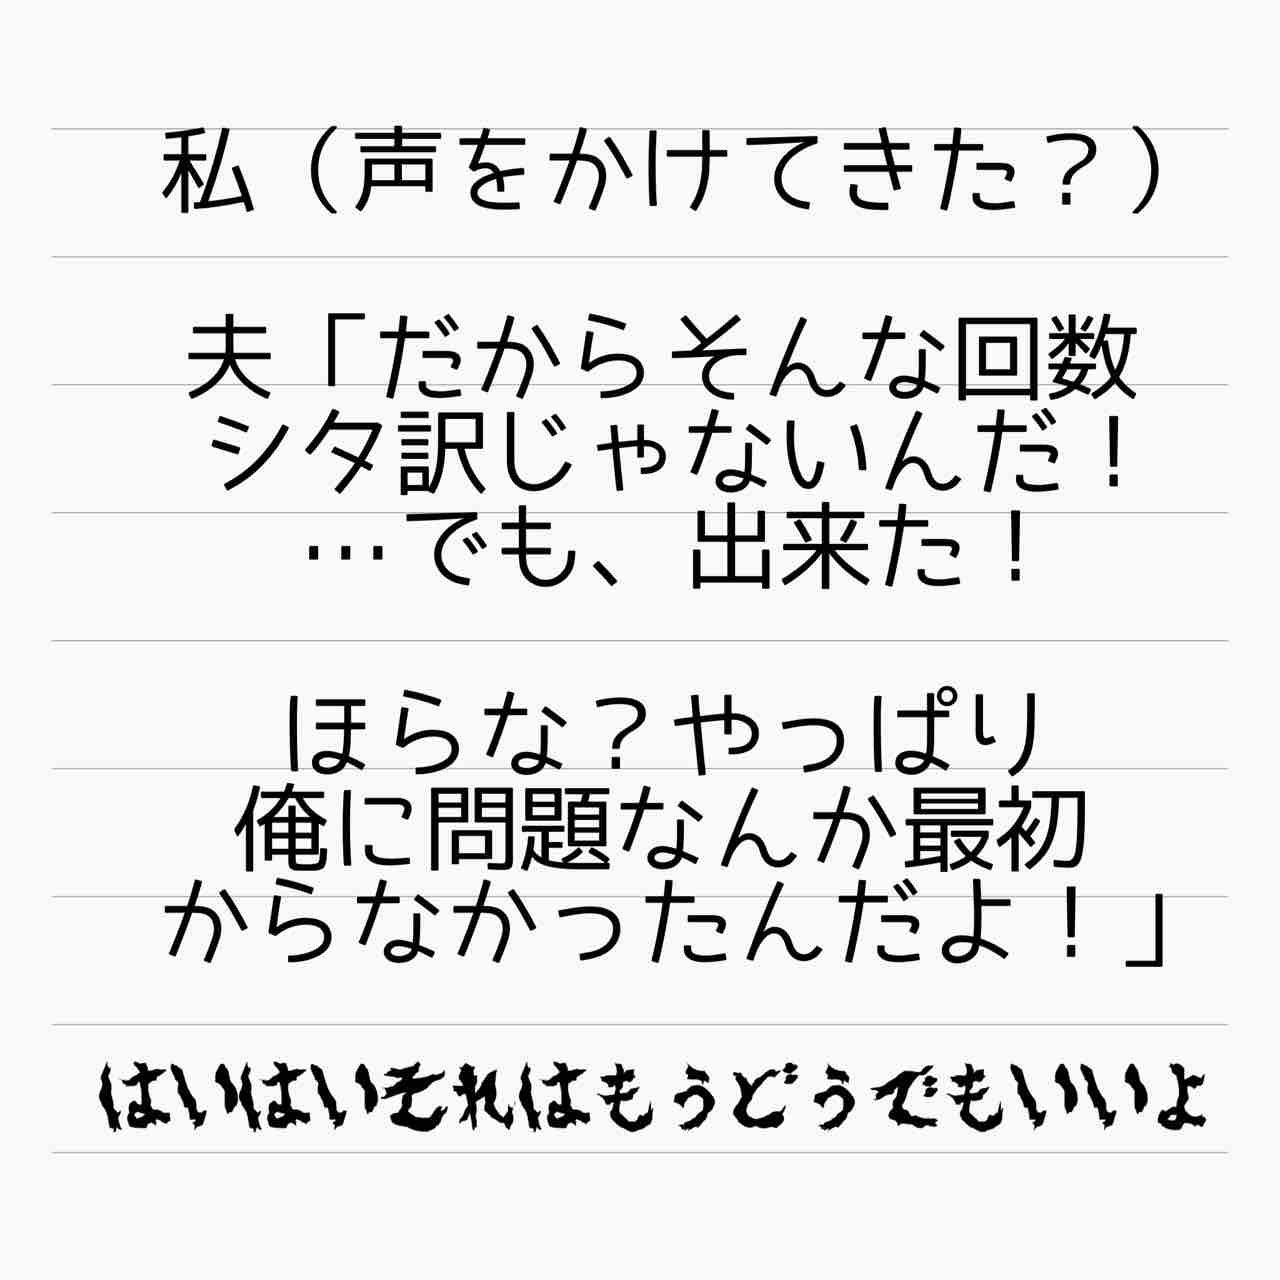 私（声をかけてきた？）
夫「だからそんな回数
シタ訳じゃないんだ！
…でも、出来た！
ほらな？やっぱり
俺に問題なんか最初
からなかったんだよ！」
はいはいそれはもうどうでもいいよ